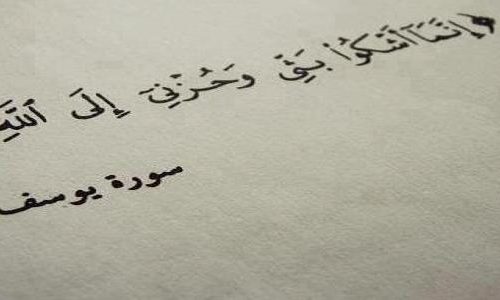 ﴿إِنَّمَآ أَشْكُوا۟ بَثِّى وَحُزْنِىٓ إِلَى ٱللَّهِ
سورة يوسف